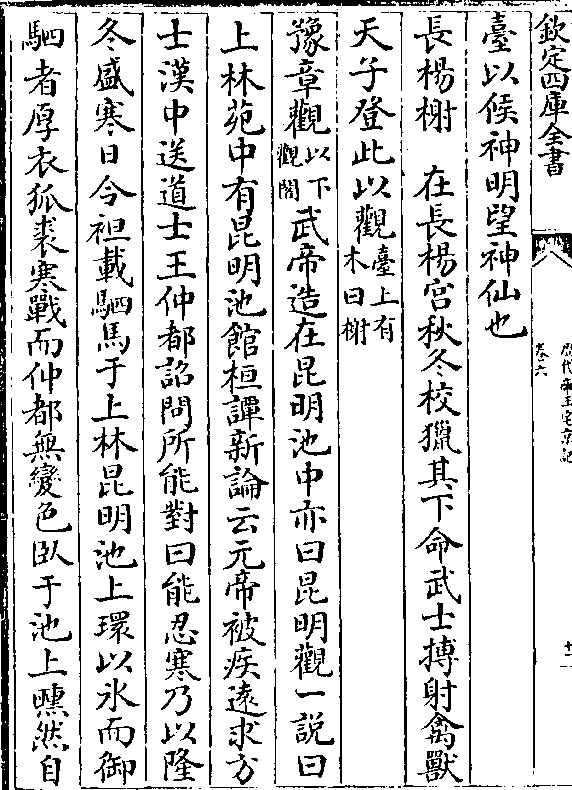 欽定四庫全書
卷六
歷代帝王宅京記
十一
臺以候神明望神仙也
長楊榭　在長楊宮秋冬校獵其下命武士搏射禽獸
天子登此以觀臺上有木曰榭
豫章觀以下觀閣武帝造在昆明池中亦曰昆明觀一說曰
上林苑中有昆明池館桓譚新論云元帝被疾遠求方
士漢中送道士王仲都詔問所能對曰能忍寒乃以隆
冬盛寒日令袒載駟馬于上林昆明池上環以冰而御
駟者厚衣狐裘寒戰而仲都無變色臥于池上曛然自